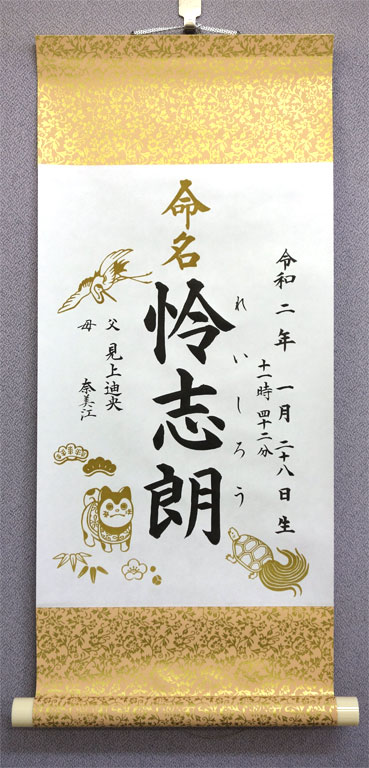 令和二年一月二十八日生
十一時四十二分
命名
怜志朗
れいしろう
父 見上迪央
母 奈美江